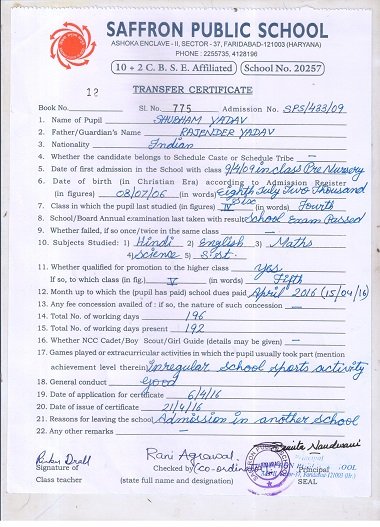 SAFFRON PUBLIC SCHOOL
ASHOKA ENCLAVE - II, SECTOR - 37, FARIDABAD-121003 (HARYANA)
PHONE : 2255735, 4128196
10 + 2 C. B. S. E. Affiliated School No. 20257
12 TRANSFER CERTIFICATE
Book No. Sl. No. 775 Admission No. SPS/433/09
1. Name of Pupil SHUBHAM YADAV
2. Father/Guardian's Name RAJENDER YADAV
3. Nationality Indian
4. Whether the candidate belongs to Schedule Caste or Schedule Tribe —
5. Date of first admission in the School with class 9/4/09 in class Pre Nursery
6. Date of birth (in Christian Era) according to Admission Register
(in figures) 08/07/06 (in words) Eighth July Two Thousand Six
7. Class in which the pupil last studied (in figures) IV (in words) Fourth
8. School/Board Annual examination last taken with result School Exam Passed
9. Whether failed, if so once/twice in the same class —
10. Subjects Studied: 1) Hindi 2) English 3) Maths
4) Science 5) S.St.
11. Whether qualified for promotion to the higher class Yes
If so, to which class (in fig.) V (in words) Fifth
12. Month up to which the (pupil has paid) school dues paid April 2016 (15/04/16)
13. Any fee concession availed of : if so, the nature of such concession —
14. Total No. of working days 196
15. Total No. of working days present 192
16. Whether NCC Cadet/Boy Scout/Girl Guide (details may be given) —
17. Games played or extracurricular activities in which the pupil usually took part (mention
achievement level therein) Irregular School sports activity
18. General conduct Good
19. Date of application for certificate 6/4/16
20. Date of issue of certificate 21/4/16
21. Reasons for leaving the school Admission in another school
22. Any other remarks —
Rani Agrawal
Signature of Checked by (Co-ordinator) Principal
Class teacher (state full name and designation) SEAL